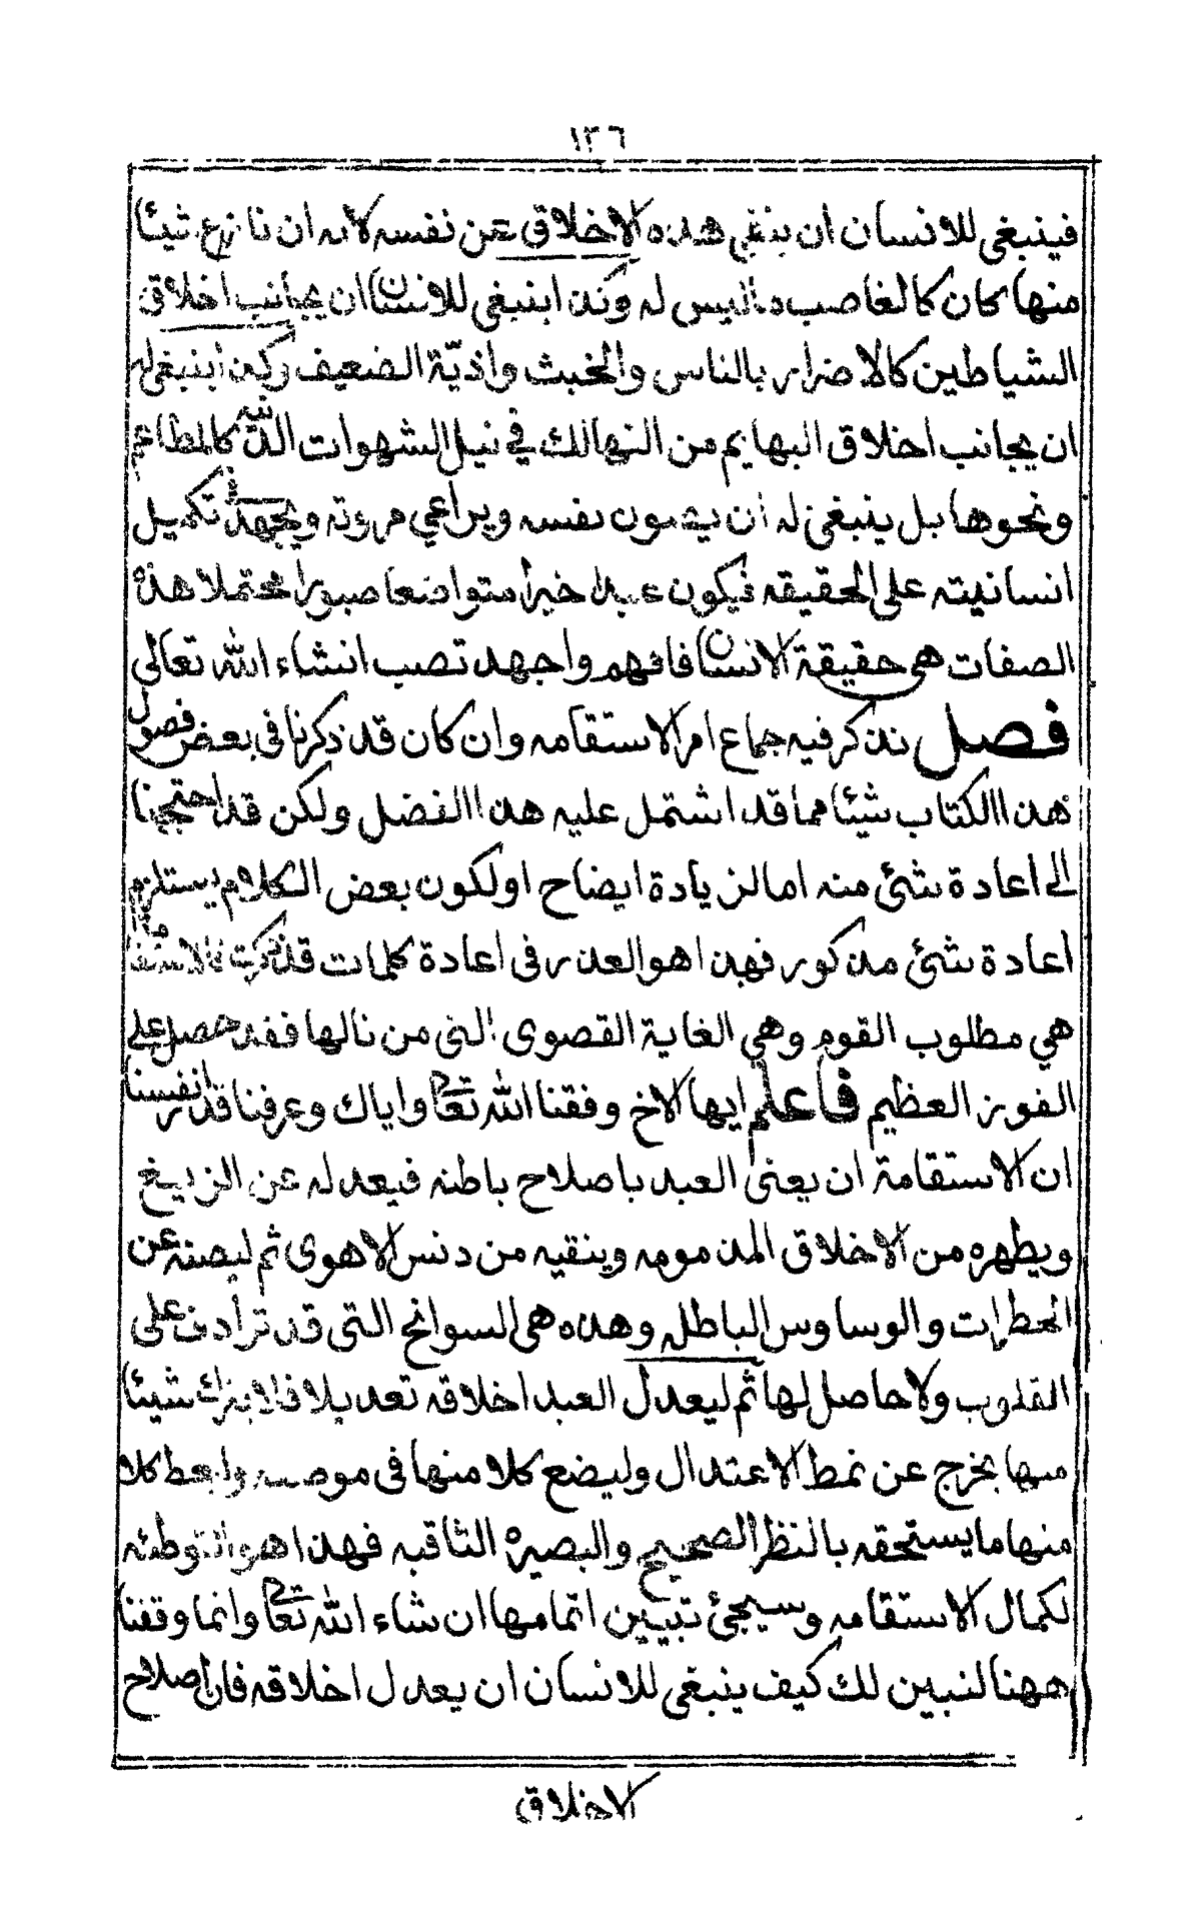 ١٣٦
فينبغي للانسان ان ينفي هذه الاخلاق عن نفسه لانه ان نازع شيئا
منها كان كالغاصب ما ليس له وكذا ينبغي للانسان ان يجانب اخلاق
الشياطين كالاضرار بالناس والخبث واذيّة الضعيف وكذا ينبغي له
ان يجانب اخلاق البهايم من التهالك في نيل الشهوات الدنيّه كالمطاعم
ونحوها بل ينبغي له ان يصون نفسه ويراعي مروته ويجهد في تكميل
انسانيته على الحقيقه فيكون عبدا خيرا متواضعا صبورا محتملا هذه
الصفات هي حقيقة الانسان فافهم واجهد تصب انشاء الله تعالى
فصل نذكر فيه جماع امر الاستقامه وان كان قد ذكرنا في بعض فصول
هذا الكتاب شيئا مما قد اشتمل عليه هذا الفضل ولكن قد احتجنا
الى اعادة شئ منه اما لزيادة ايضاح او لكون بعض الكلام يستلزم
اعادة شئ مذكور فهذا هو العذر في اعادة كلمات قد ذكرت فالاستقامة
هي مطلوب القوم وهي الغاية القصوى التي من نالها فقد حصل على
الفوز العظيم فاعلم ايها الاخ وفقنا الله تعالى واياك وعرفنا قدر انفسنا
ان الاستقامة ان يعنى العبد باصلاح باطنه فيعدله عن الزيغ
ويطهره من الاخلاق المذمومه وينقيه من دنس الاهوى ثم ليصنه عن
الخطرات والوساوس الباطله وهذه هي السوانح التي قد ترادف على
القلوب ولا حاصل لها ثم ليعدل العبد اخلاقه تعديلا فلا يترك شيئا
منها يخرج عن نمط الاعتدال وليضع كلا منها في موضعه وليعط كلا
منها ما يستحقه بالنظر الصحيح والبصيره الثاقبه فهذا هو التوطئه
لكمال الاستقامه وسيجئ تبيين اتمامها ان شاء الله تعالى وانما وقفنا
ههنا لنبين لك كيف ينبغي للانسان ان يعدل اخلاقه فان اصلاح
الاخلاق